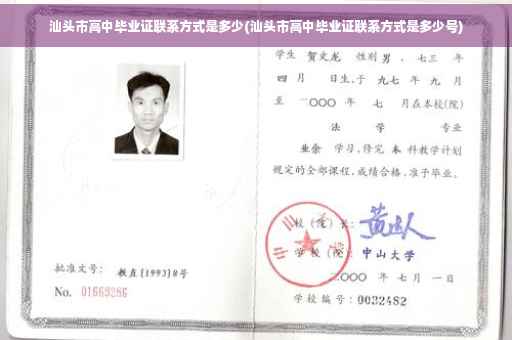 汕头市高中毕业证联系方式是多少(汕头市高中毕业证联系方式是多少号)
学生 贺文龙 性别 男 、七三 年
四 月 日生,于 九七 年 九 月
至 二〇〇〇 年 七 月在本校(院)
法 学 专业
业余 学习,修完 本 科教学计划
规定的全部课程,成绩合格,准予毕业。
校(院)长:
学校(院):中山大学
二〇〇〇 年 七 月 一 日
批准文号: 教直[1993]8号
No. 01669286
学校编号:0032482
中山大学